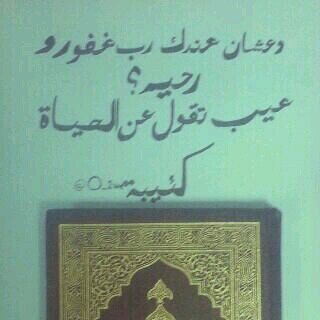 وعشان عندك رب غفور و
رحيم ؟
عيب تقول عن الحياة
كئيبة